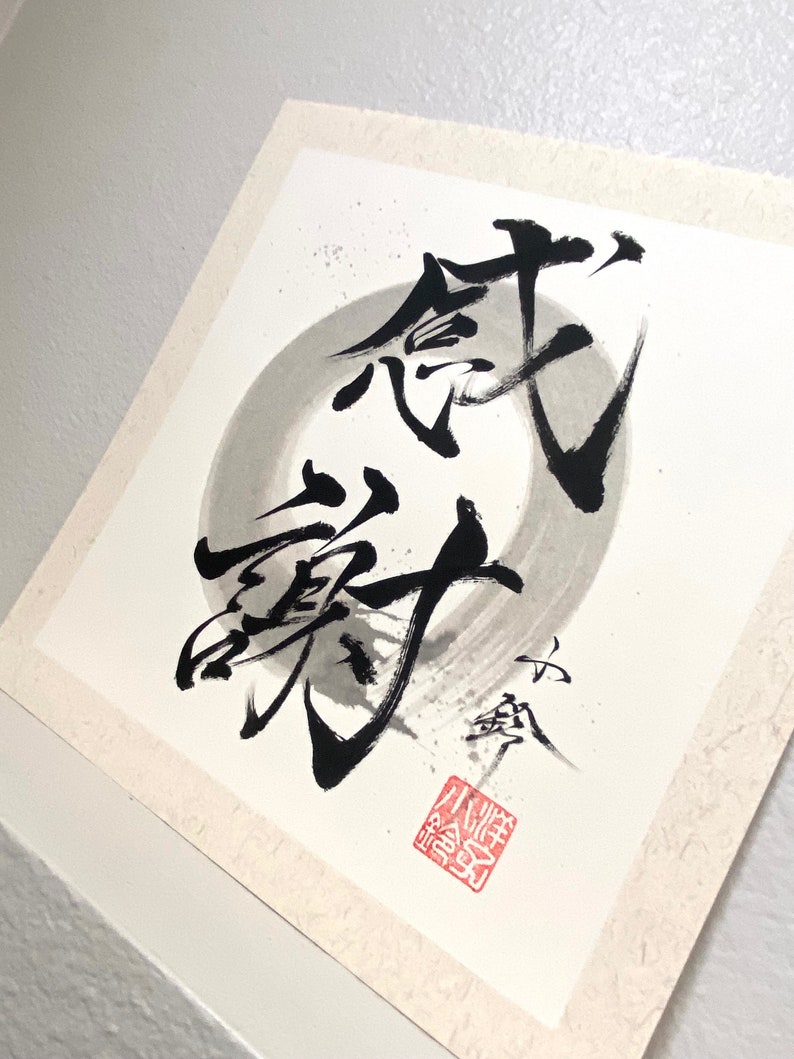 感謝
小鈴
洋子
小鈴